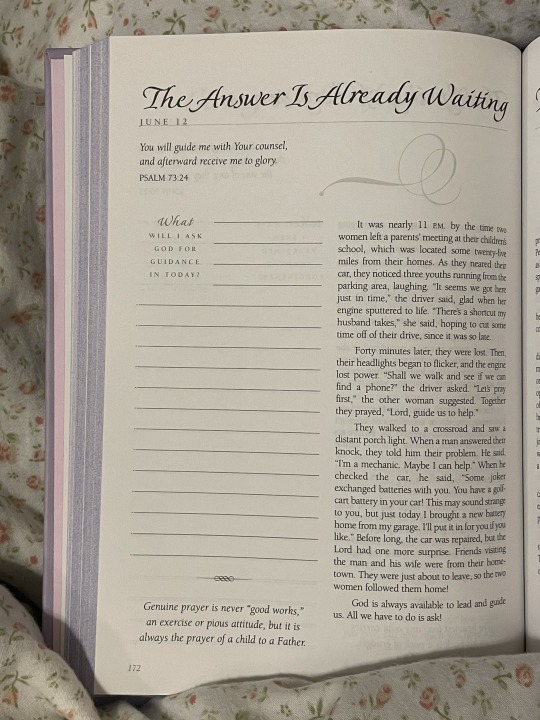 The Answer Is Already Waiting
JUNE 12
You will guide me with Your counsel,
and afterward receive me to glory.
PSALM 73:24
What
WILL I ASK
GOD FOR
GUIDANCE
IN TODAY?
It was nearly 11 P.M. by the time two
women left a parents' meeting at their children's
school, which was located some twenty-five
miles from their homes. As they neared their
car, they noticed three youths running from the
parking area, laughing. "It seems we got here
just in time," the driver said, glad when her
engine sputtered to life. "There's a shortcut my
husband takes," she said, hoping to cut some
time off of their drive, since it was so late.
Forty minutes later, they were lost. Then,
their headlights began to flicker, and the engine
lost power. "Shall we walk and see if we can
find a phone?" the driver asked. "Let's pray
first," the other woman suggested. Together
they prayed, "Lord, guide us to help."
They walked to a crossroad and saw a
distant porch light. When a man answered their
knock, they told him their problem. He said,
"I'm a mechanic. Maybe I can help." When he
checked the car, he said, "Some joker
exchanged batteries with you. You have a golf-
cart battery in your car! This may sound strange
to you, but just today I brought a new battery
home from my garage. I'll put it in for you if you
like." Before long, the car was repaired, but the
Lord had one more surprise. Friends visiting
the man and his wife were from their home-
town. They were just about to leave, so the two
women followed them home!
God is always available to lead and guide
us. All we have to do is ask!
Genuine prayer is never "good works,"
an exercise or pious attitude, but it is
always the prayer of a child to a Father.
172